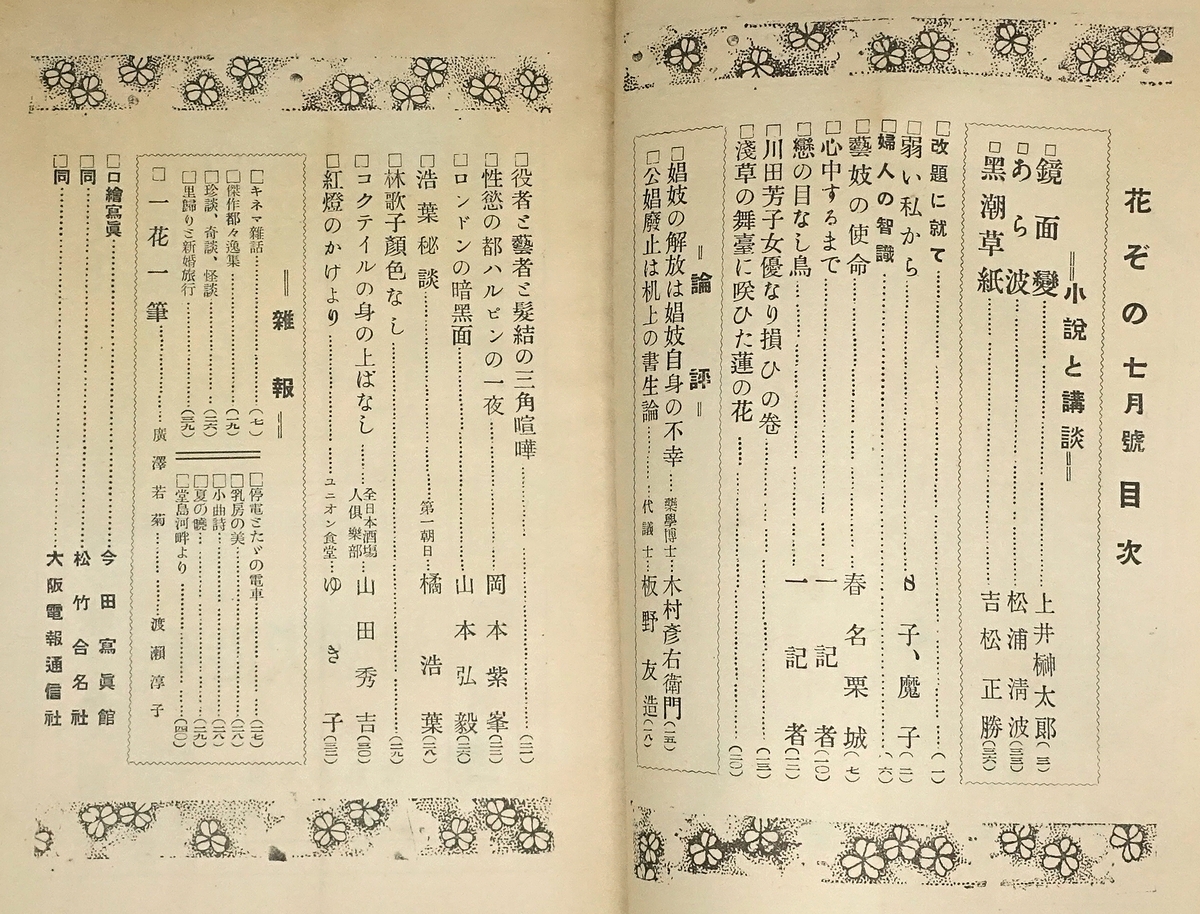 花ぞの七月號目次
小說と講談
□鏡面變 上井榊太郎
□あら波 松浦淸波(三三)
□黑潮草紙 吉松正勝(三六)
□改題に就て(一)
□弱い私から S子、魔子
□婦人の智識(六)
□藝妓の使命 春名栗城(七)
□心中するまで 一記者(一〇)
□戀の目なし鳥 一記者(一二)
□川田芳子女優なり損ひの卷(一三)
□淺草の舞臺に咲ひた蓮の花(二〇)
論評
□娼妓の解放は娼妓自身の不幸 藥學博士 木村彥右衞門(一五)
□公娼廢止は机上の書生論 代議士 板野友造(一八)
□役者と藝者と髮結の三角喧嘩
□性慾の都ハルピンの一夜 岡本紫峯
□ロンドンの暗黑面 山本弘毅(二六)
□浩葉秘談 第一朝日 橘浩葉(二八)
□林歌子顏色なし(二九)
□コクテイルの身の上ばなし 全日本酒場人俱樂部 山田秀吉(三〇)
□紅燈のかげより ユニオン食堂 ゆき子(三二)
雜報
□キネマ雜話(七)
□傑作都々逸集(一九)
□珍談、奇談、怪談(二六)
□里歸りと新婚旅行(三九)
□停電とたゞの電車(二七)
□乳房の美(二八)
□小曲詩(二八)
□夏の曉(二九)
□堂島河畔より(四〇)
□一花一筆 廣澤若菊 渡瀨淳子
□口繪寫眞 今田寫眞館
□同 松竹合名社
□同 大阪電報通信社